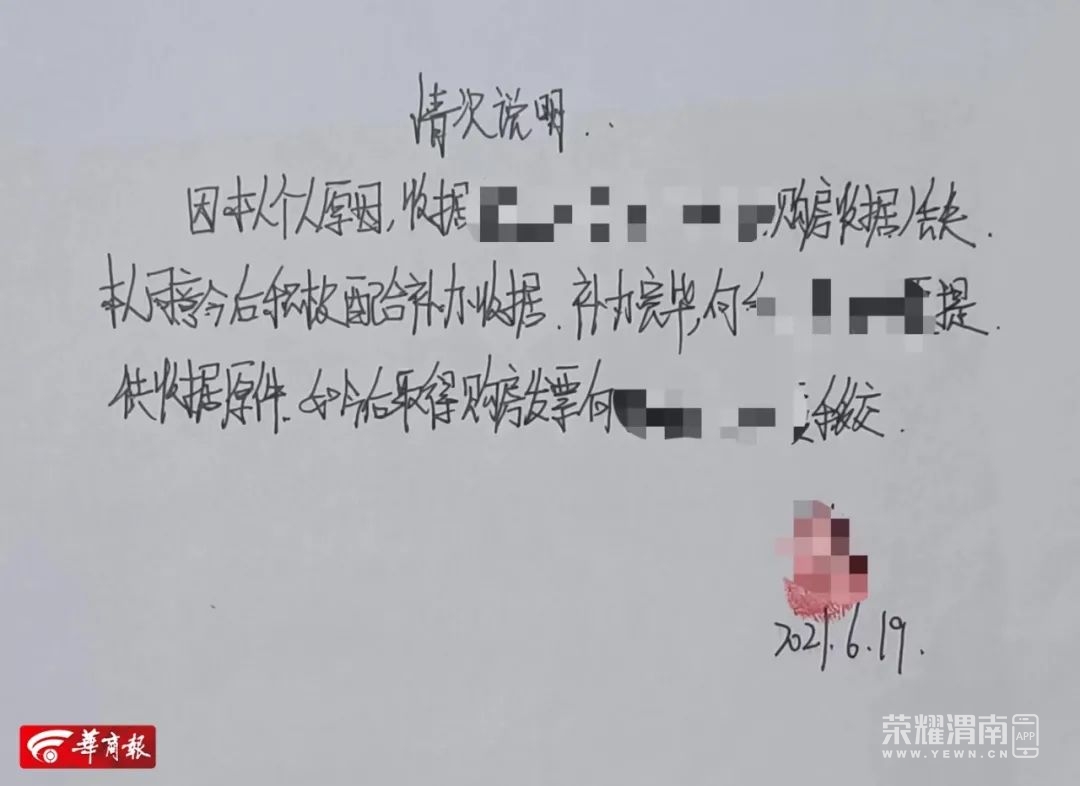 情次说明..
因本人个人原因,收据 购房收据缺失.
本人同意今后积极配合补办收据.补办完毕,向 提
供收据原件.如今后取得购房发票向 移交.
2021.6.19.
華商報
荣耀渭南 APP
WWW.YEWN.CN